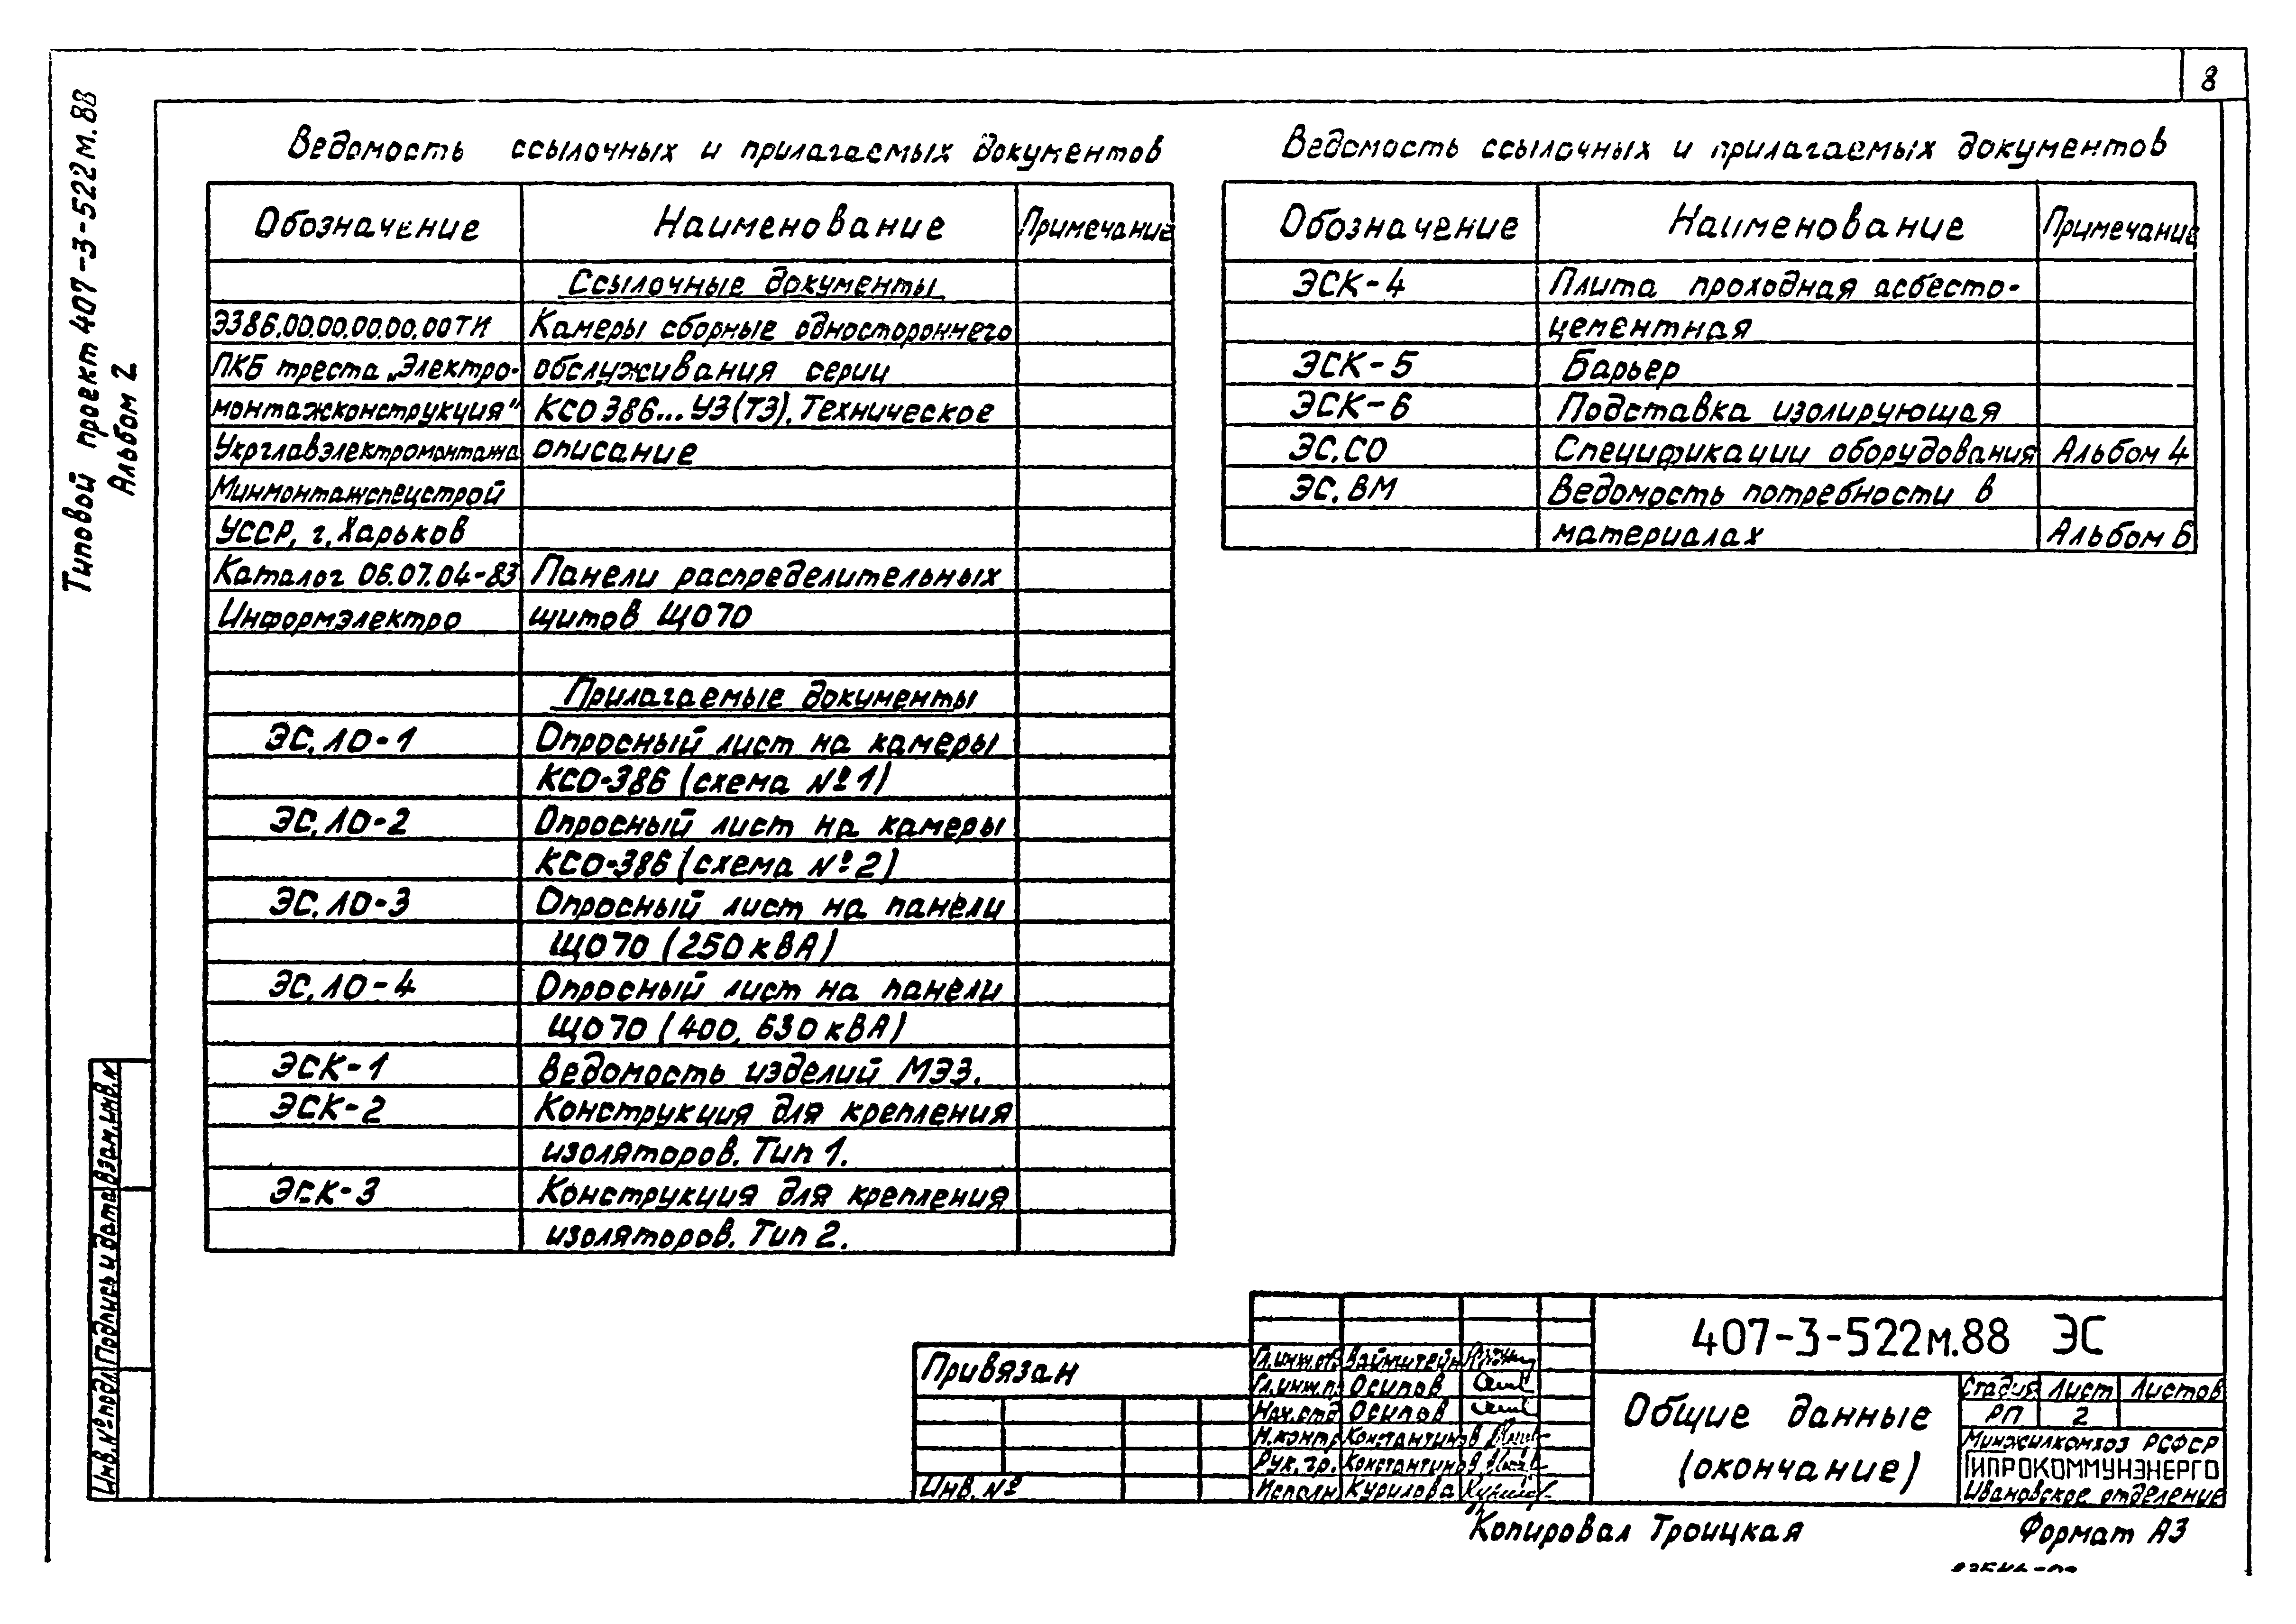 8
Типовой проект 407-3-522м.88
Альбом 2
Ведомость ссылочных и прилагаемых документов
Обозначение Наименование Примечание
Ссылочные документы
Э386.00.00.00.00.00ТИ Камеры сборные одностороннего
ПКБ треста „Электро- обслуживания серии
монтажконструкция" КСО 386...УЗ(ТЗ). Техническое
Укрглавэлектромонтажа описание
Минмонтажспецстрой
УССР, г. Харьков
Каталог 06.07.04-83 Панели распределительных
Информэлектро щитов ЩО70
Прилагаемые документы
ЭС.ЛО-1 Опросный лист на камеры
КСО-386 (схема №1)
ЭС.ЛО-2 Опросный лист на камеры
КСО-386 (схема №2)
ЭС.ЛО-3 Опросный лист на панели
ЩО70 (250 кВА)
ЭС.ЛО-4 Опросный лист на панели
ЩО70 (400, 630 кВА)
ЭСК-1 Ведомость изделий МЭЗ.
ЭСК-2 Конструкция для крепления
изоляторов. Тип 1.
ЭСК-3 Конструкция для крепления
изоляторов. Тип 2.
Ведомость ссылочных и прилагаемых документов
Обозначение Наименование Примечание
ЭСК-4 Плита проходная асбесто-
цементная
ЭСК-5 Барьер
ЭСК-6 Подставка изолирующая
ЭС.СО Спецификации оборудования Альбом 4
ЭС.ВМ Ведомость потребности в
материалах Альбом 6
Инв.№подл Подпись и дата Взам.инв.№
Привязан
Инв.№
Гл.инж.от. Вайнштейн
Гл.инж.п. Осипов
Нач.отд Осипов
Н.контр Константинов
Рук.гр. Константинов
Исполн Курилова
407-3-522м.88 ЭС
Общие данные
(окончание)
Стадия Лист Листов
РП 2
Минжилкомхоз РСФСР
ГИПРОКОММУНЭНЕРГО
Ивановское отделение
Копировал Троицкая
Формат А3